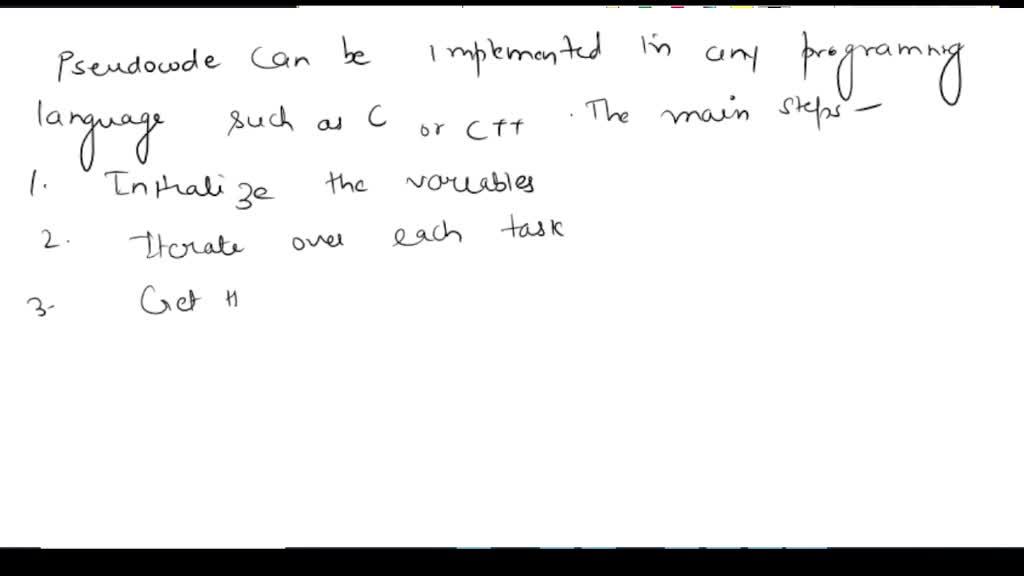 Pseudocode can be implemented in any programing
language such as C or C++. The main steps –
1. Initialize the variables
2. Iterate over each task
3- Get